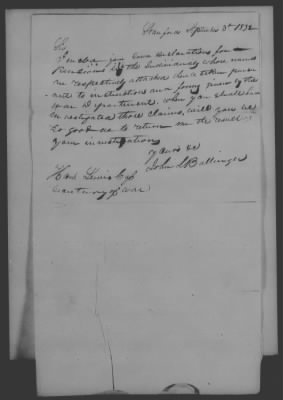 Stanford September 3d 1832
Sir
I enclose you two declarations for
Pensions by the Individuals whose names
are respectively attached thereto taken pursu
ant to instructions and forms given by the
war department, when you shall have
investigated those claims, will you be
so good as to return me the result
of your investigation
yours &c
John Ballinger
Hon Lewis Cass
secretary of war